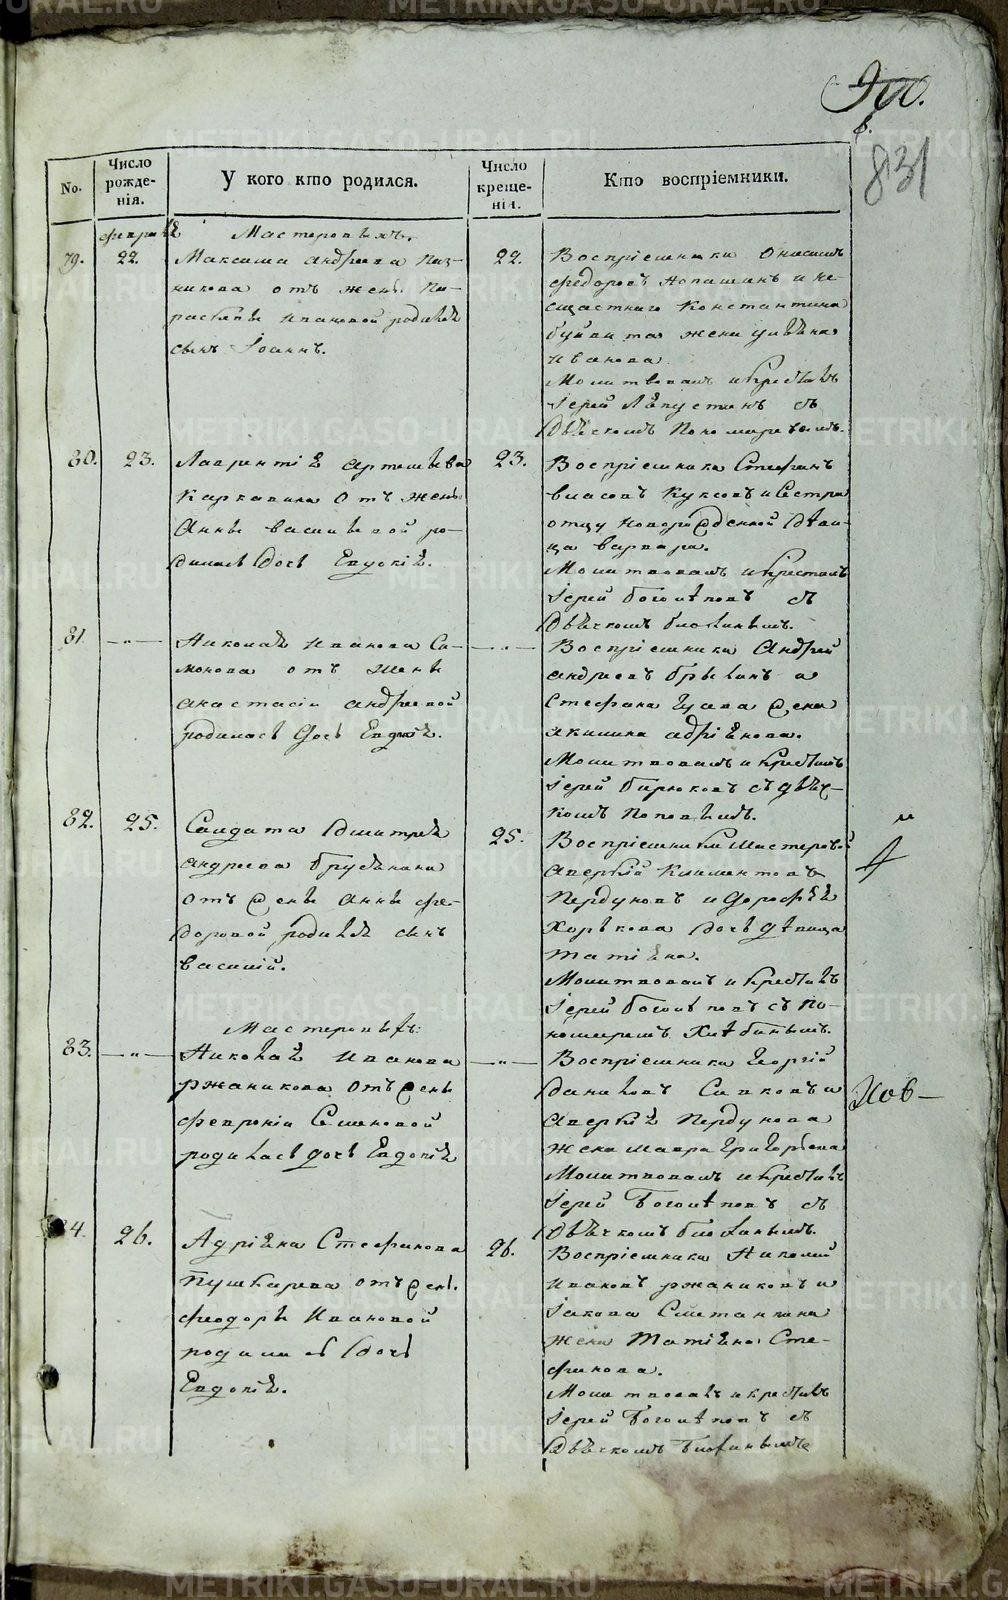 900.
831
No.
Число рожде-нія.
У кого кто родился.
Число креще-нія.
Кто воспріемники.
Мастеровыхъ.
79.
22.
Максима Андреева
отъ жены Па-
расковьи Ивановой родился
сынъ Іоаннъ.
22.
Воспріемники Онисимъ
Федоровъ Лопашинъ и не-
щастнаго Константина
жена Ульяна
Иванова.
Молитвовалъ и крестилъ
Іерей Ляпустинъ съ
Дьячкомъ Пономаревымъ.
80.
23.
Лаврентія Артемьева
Каркавина отъ жены
Анны Васильевой ро-
дилась дочь Евдокія.
23.
Воспріемники Стефанъ
Власовъ Куксовъ и Сестра
отцу новорожденной Деви-
ца Варвара.
Молитвовалъ и крестилъ
Іерей Боголеповъ съ
Дьячкомъ
81.
—"—
Николая Иванова Са-
монова отъ жены
Анастасіи Андреевой
родилась дочь Евдокія.
—"—
Воспріемники Андрей
Андреевъ и
Стефана жена
Акилина Адріянова.
Молитвовалъ и крестилъ
Іерей Бирюковъ съ Дьяч-
комъ Поповымъ.
82.
25.
Салдата Дмитрея
Андреева Брусянина
отъ жены Анны Фе-
доровой родился сынъ
Василій.
25.
Воспріемники Мастеровой
Аверкій Климентовъ
Пердуновъ и Дорофея
Хорькова дочь девица
Татіяна.
Молитвовалъ и крестилъ
Іерей Боголеповъ съ По-
номаремъ Хлебинымъ.
Мастеровыхъ:
83.
—"—
Николая Иванова
Ржаникова отъ жены
Февроніи Семеновой
родилась дочь Евдокія
—"—
Воспріемники Георгій
Даниловъ Сапковъ и
Аверкія Пердунова
жена Мавра Григорьева
Молитвовалъ и крестилъ
Іерей Боголеповъ съ
Дьячкомъ
84.
26.
Адріяна Стефанова
Пушкарева отъ жены
Феодоры Ивановой
родилась дочь
Евдокія.
26.
Воспріемники Николай
Ивановъ Ржаниковъ и
Іакова Сметанкина
жена Татіяна Сте-
фанова.
Молитвовалъ и крестилъ
Іерей Боголеповъ съ
Дьячкомъ